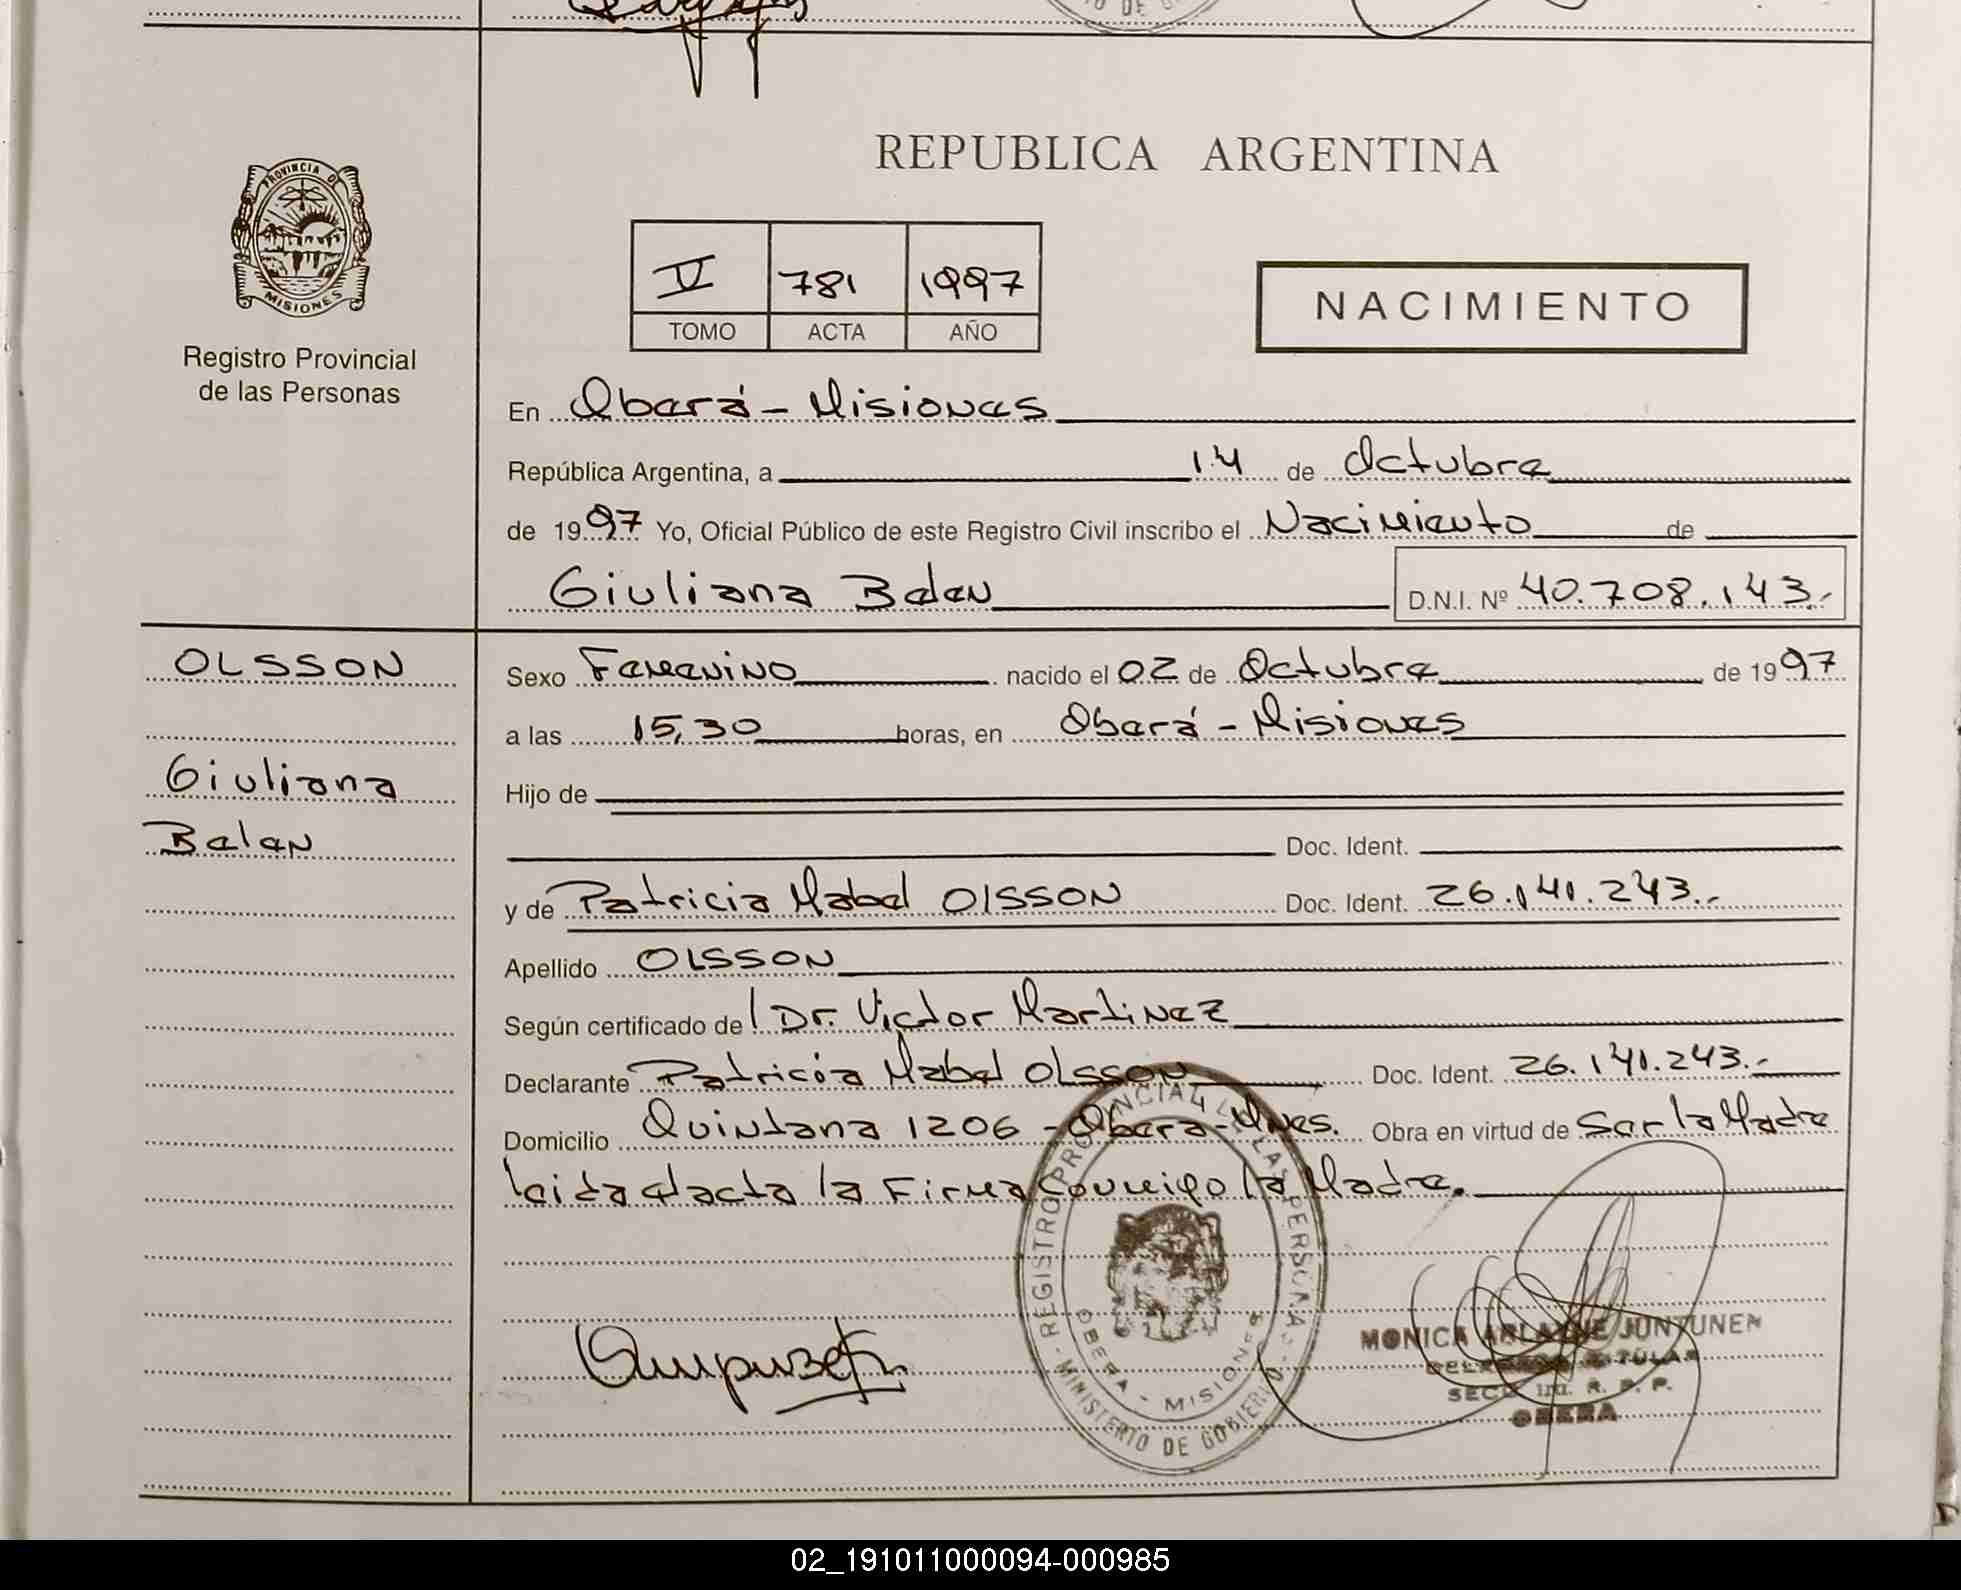 REPUBLICA ARGENTINA
PROVINCIA DE
MISIONES
Registro Provincial
de las Personas
V 781 1997
TOMO ACTA AÑO
NACIMIENTO
En Oberá - Misiones
República Argentina, a 14 de Octubre
de 1997 Yo, Oficial Público de este Registro Civil inscribo el Nacimiento de
Giuliana Belen D.N.I. Nº 40.708.143.-
OLSSON
Giuliana
Belen
Sexo Femenino nacido el 02 de Octubre de 1997
a las 15,30 horas, en Oberá - Misiones
Hijo de
Doc. Ident.
y de Patricia Mabel OlSSON Doc. Ident. 26.141.243.-
Apellido OLSSON
Según certificado de Dr. Victor Martinez
Declarante Patricia Mabel Olsson Doc. Ident. 26.141.243.-
Domicilio Quintana 1206 - Oberá - Mnes. Obra en virtud de Ser la Madre
leida el acta la Firma conmigo la Madre.
REGISTRO PROVINCIAL DE LAS PERSONAS - MINISTERIO DE GOBIERNO
OBERA - MISIONES
MONICA ARLAINE JUNTUNEN
DELEGADA TITULAR
SECC. 1ra. R. P. P.
OBERA
02_191011000094-000985